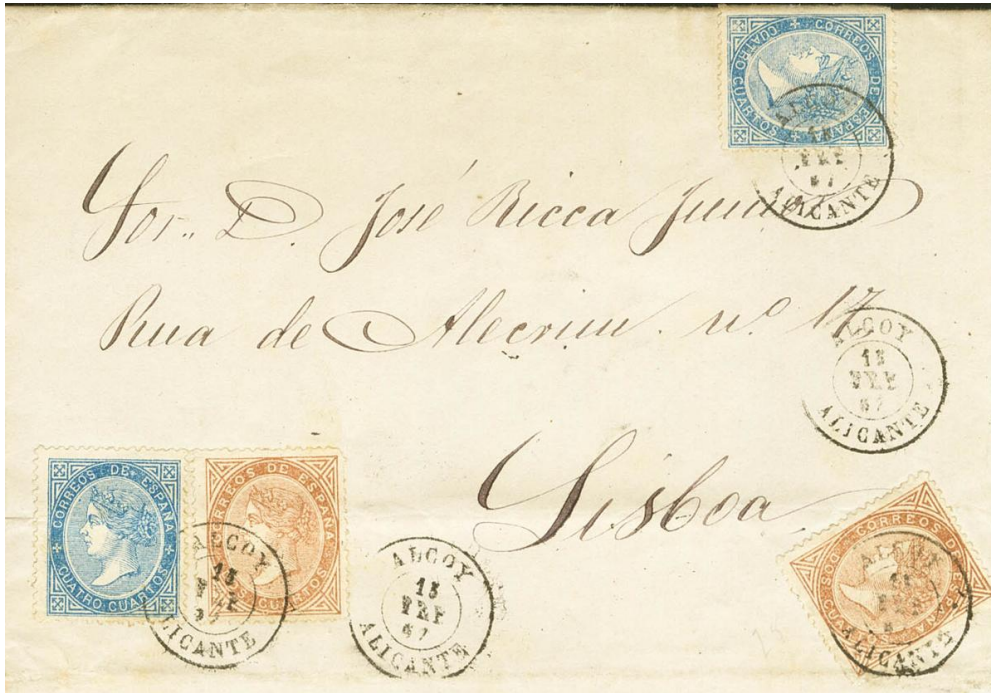 CORREOS DE ESPAÑA
CUATRO CUARTOS
ALCOY
FEB
67
ALICANTE
Sor. D. José Ricca Junior
Rua de Alecrim nº 17
ALCOY
13
FEB
67
ALICANTE
Lisboa
CORREOS DE ESPAÑA
CUATRO CUARTOS
CORREOS DE ESPAÑA
CUARTOS
ALCOY
13
FEB
67
ALICANTE
ALCOY
13
FEB
67
ALICANTE
CORREOS DE ESPAÑA
DOS CUARTOS
ALCOY
13
FEB
ALICANTE